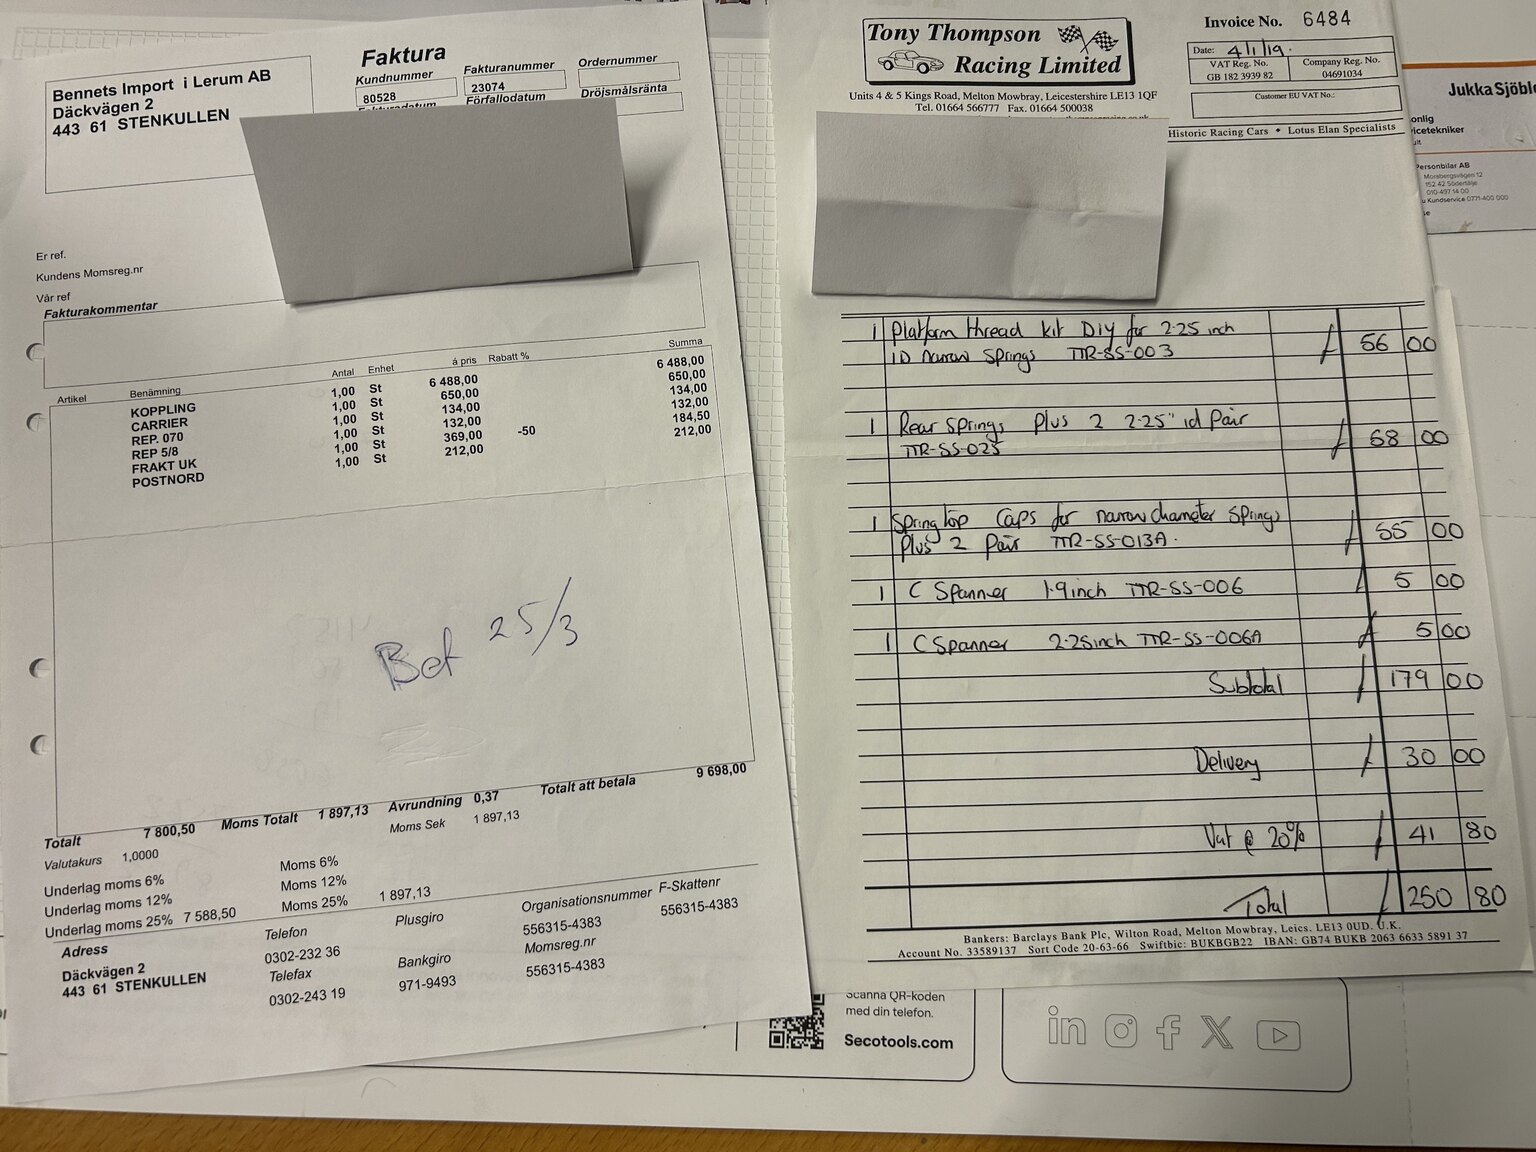 Bennets Import i Lerum AB
Däckvägen 2
443 61 STENKULLEN
Faktura
Kundnummer Fakturanummer Ordernummer
80528 23074
Förfallodatum Dröjsmålsränta
Er ref.
Kundens Momsreg.nr
Vår ref
Fakturakommentar
Artikel Benämning Antal Enhet á pris Rabatt % Summa
KOPPLING 1,00 St 6 488,00 6 488,00
CARRIER 1,00 St 650,00 650,00
REP. 070 1,00 St 134,00 134,00
REP 5/8 1,00 St 132,00 132,00
FRAKT UK 1,00 St 369,00 -50 184,50
POSTNORD 1,00 St 212,00 212,00
Bet 25/3
Totalt 7 800,50 Moms Totalt 1 897,13 Avrundning 0,37 Totalt att betala 9 698,00
Valutakurs 1,0000 Moms Sek 1 897,13
Underlag moms 6% Moms 6%
Underlag moms 12% Moms 12%
Underlag moms 25% 7 588,50 Moms 25% 1 897,13
Adress Telefon Plusgiro Organisationsnummer F-Skattenr
Däckvägen 2 0302-232 36 556315-4383 556315-4383
443 61 STENKULLEN Telefax Bankgiro Momsreg.nr
0302-243 19 971-9493 556315-4383
Tony Thompson
Racing Limited
Invoice No. 6484
Date: 4/1/19.
VAT Reg. No. Company Reg. No.
GB 182 3939 82 04691034
Customer EU VAT No.:
Units 4 & 5 Kings Road, Melton Mowbray, Leicestershire LE13 1QF
Tel. 01664 566777 Fax. 01664 500038
Historic Racing Cars • Lotus Elan Specialists
1 Platform thread kit DIY for 2.25 inch
ID narrow springs TTR-SS-003 £ 56 00
1 Rear Springs Plus 2 2.25" id Pair
TTR-SS-025 £ 58 00
1 Spring top caps for narrow diameter springs
Plus 2 Pair TTR-SS-013A. £ 55 00
1 C Spanner 1.9inch TTR-SS-006 £ 5 00
1 C Spanner 2.25inch TTR-SS-006A £ 5 00
Subtotal £ 179 00
Delivery £ 30 00
Vat @ 20% £ 41 80
Total £ 250 80
Bankers: Barclays Bank Plc, Wilton Road, Melton Mowbray, Leics. LE13 0UD. U.K.
Account No. 33589137 Sort Code 20-63-66 Swiftbic: BUKBGB22 IBAN: GB74 BUKB 2063 6633 5891 37
Jukka
Personbilar AB
Morabergsvägen 12
152 42 Södertälje
010-497 14 00
Kundservice 0771-400 000
Scanna QR-koden
med din telefon.
Secotools.com
in